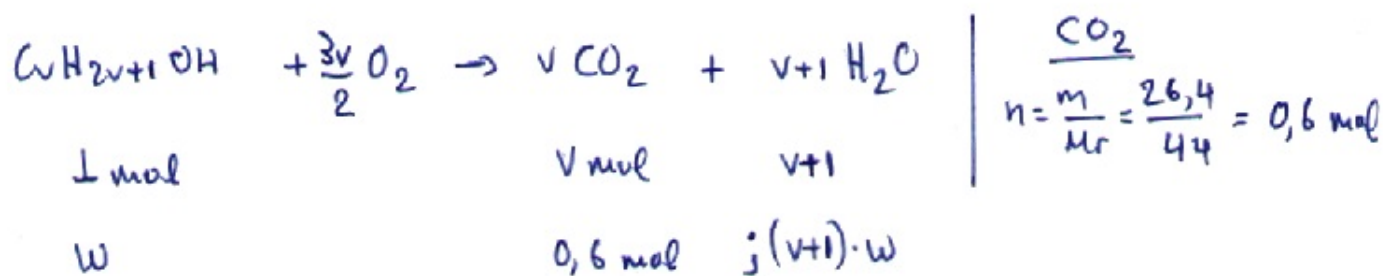 CνH2ν+1 OH + 3ν/2 O2 → ν CO2 + ν+1 H2O
1 mol ν mol ν+1
ω 0,6 mol ; (ν+1)·ω
CO2
n = m/Mr = 26,4/44 = 0,6 mol